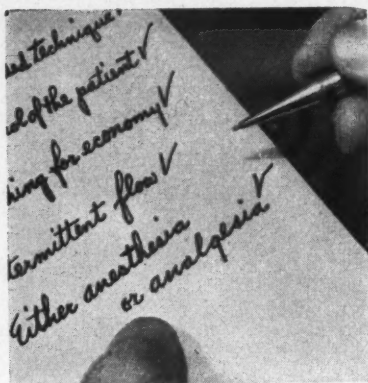 technique.
of the patient ✓
for economy ✓
flow ✓
Either anesthesia
or analgesia ✓